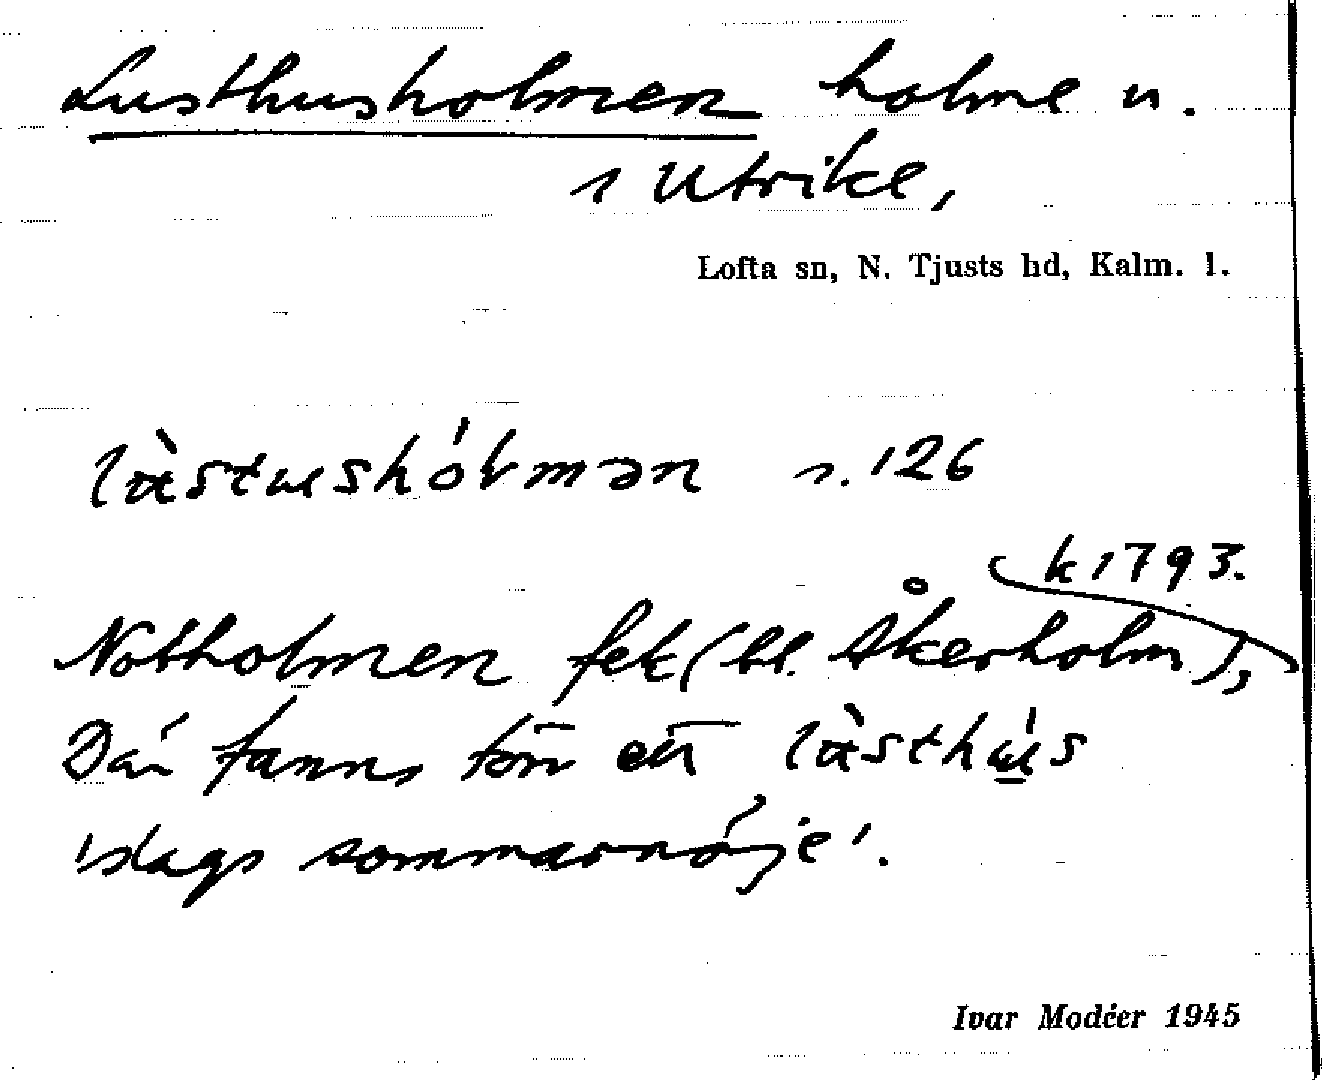 Lusthusholmen holme u.
s Utrike,
Lofta sn, N. Tjusts hd, Kalm. l.
s. 126
k 1793.
Notholmen fek (bl. Åkerholm),
Där fanns förr ett
'slags sommarnöje'.
Ivar Modéer 1945